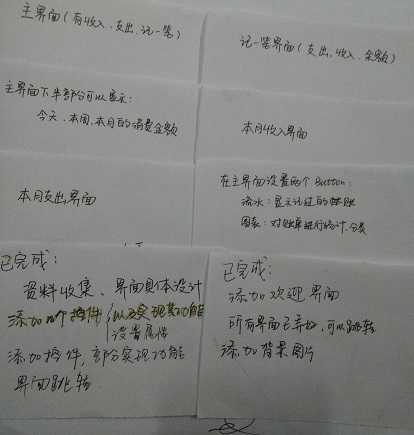 主界面(有收入、支出、记一笔)
记一笔界面(支出、收入、余额)
主界面下半部分可以显示:
今天、本周、本月的消费金额
本月收入界面
本月支出界面
在主界面设置两个Button:
流水:显示记过的账
图表:对账单进行统计、分类
已完成:
资料收集、界面具体设计
添加 控件,以及实现其功能
设置属性
添加控件,部分实现功能
界面跳转
已完成:
添加欢迎界面
所有界面已弄好,可以跳转
添加背景图片